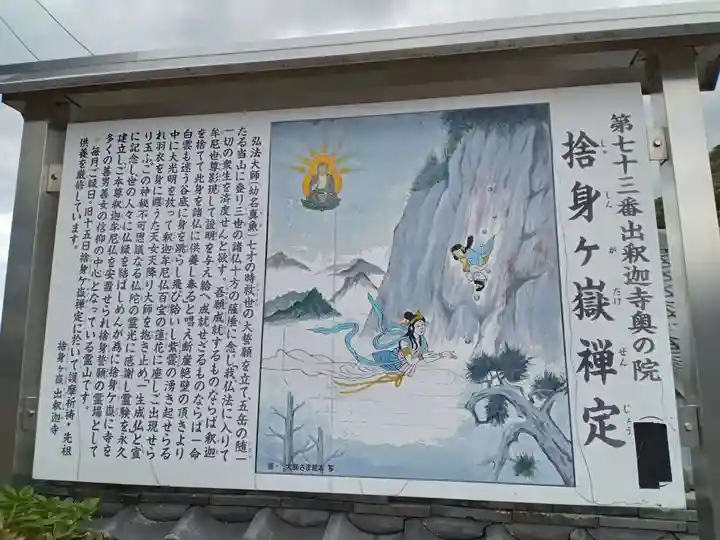 第七十三番出釈迦寺奥の院
捨身ヶ嶽禅定
しゃ しん が たけ ぜん じょう
弘法大師(幼名真魚)七才の時救世の大誓願を立て、五岳の随一
たる当山に登り三世の諸仏十方の薩埵に念じ我仏法に入りて
一切の衆生を済度せんと欲す、吾願成就するものならば釈迦
牟尼世尊影現して證明を与え給へ成就せざるものならば一命
を捨てて此身を諸仏に供養し奉ると唱え断崖絶壁の頂きより
白雲も迷う谷底に身を跳らし飛び給いし紫雲の湧き起せらる
中に大光明を放って釈迦牟尼仏百宝の蓮花に座しご出現せら
れ羽衣を身に纏うた天女天降り大師を抱き止め「一生成仏」と宣
り玉ふ、この神秘不可思議なる仏陀の霊光に感謝し霊験を永久
に記念し世の人々に仏縁を結ばしめんが為に捨身ヶ嶽に寺を
建立しご本尊釈迦牟尼仏を安置せられ捨身誓願の霊場として
多くの善男善女の信仰の中心となっている霊山です。
毎月ご縁日。旧十五日捨身ヶ嶽禅定に於いて護摩祈祷・先祖
供養を厳修しています。
捨身ヶ嶽 出釈迦寺
大師さま絵本 写